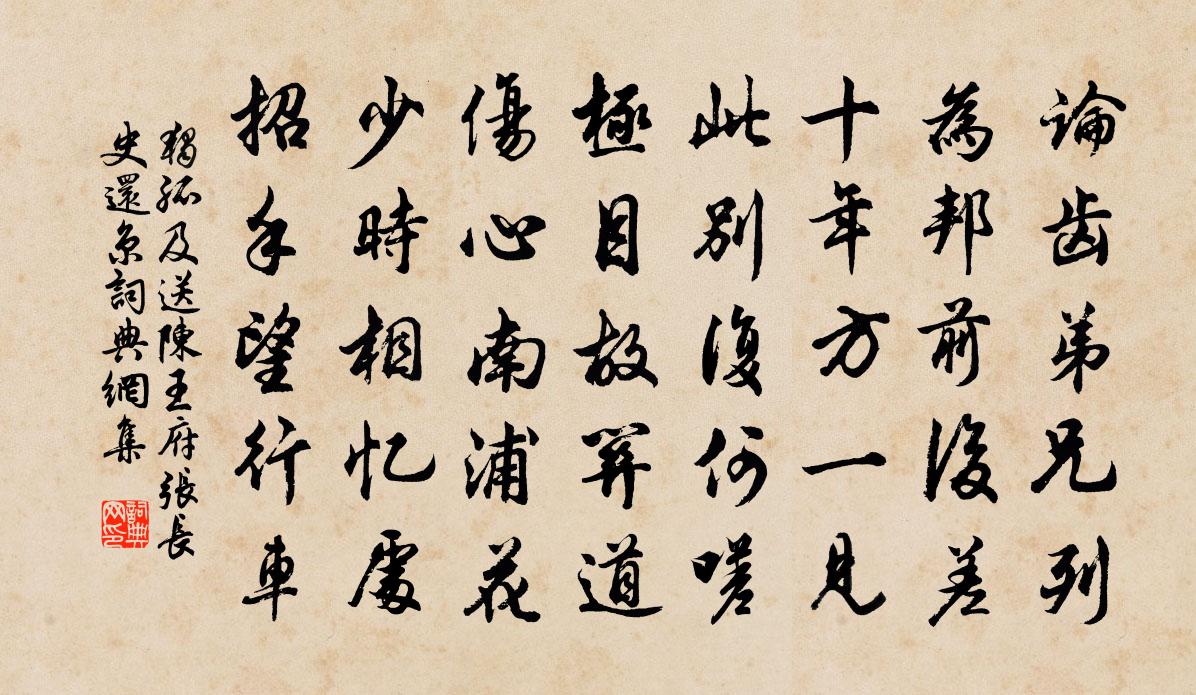 論齿弟兄列
為邦前後差
十年方一見
此别復何嗟
極目故關道
傷心南浦花
少時相忆處
招手望行車
獨孤及送陳王府張長
史還京詞典網集
詞典网印